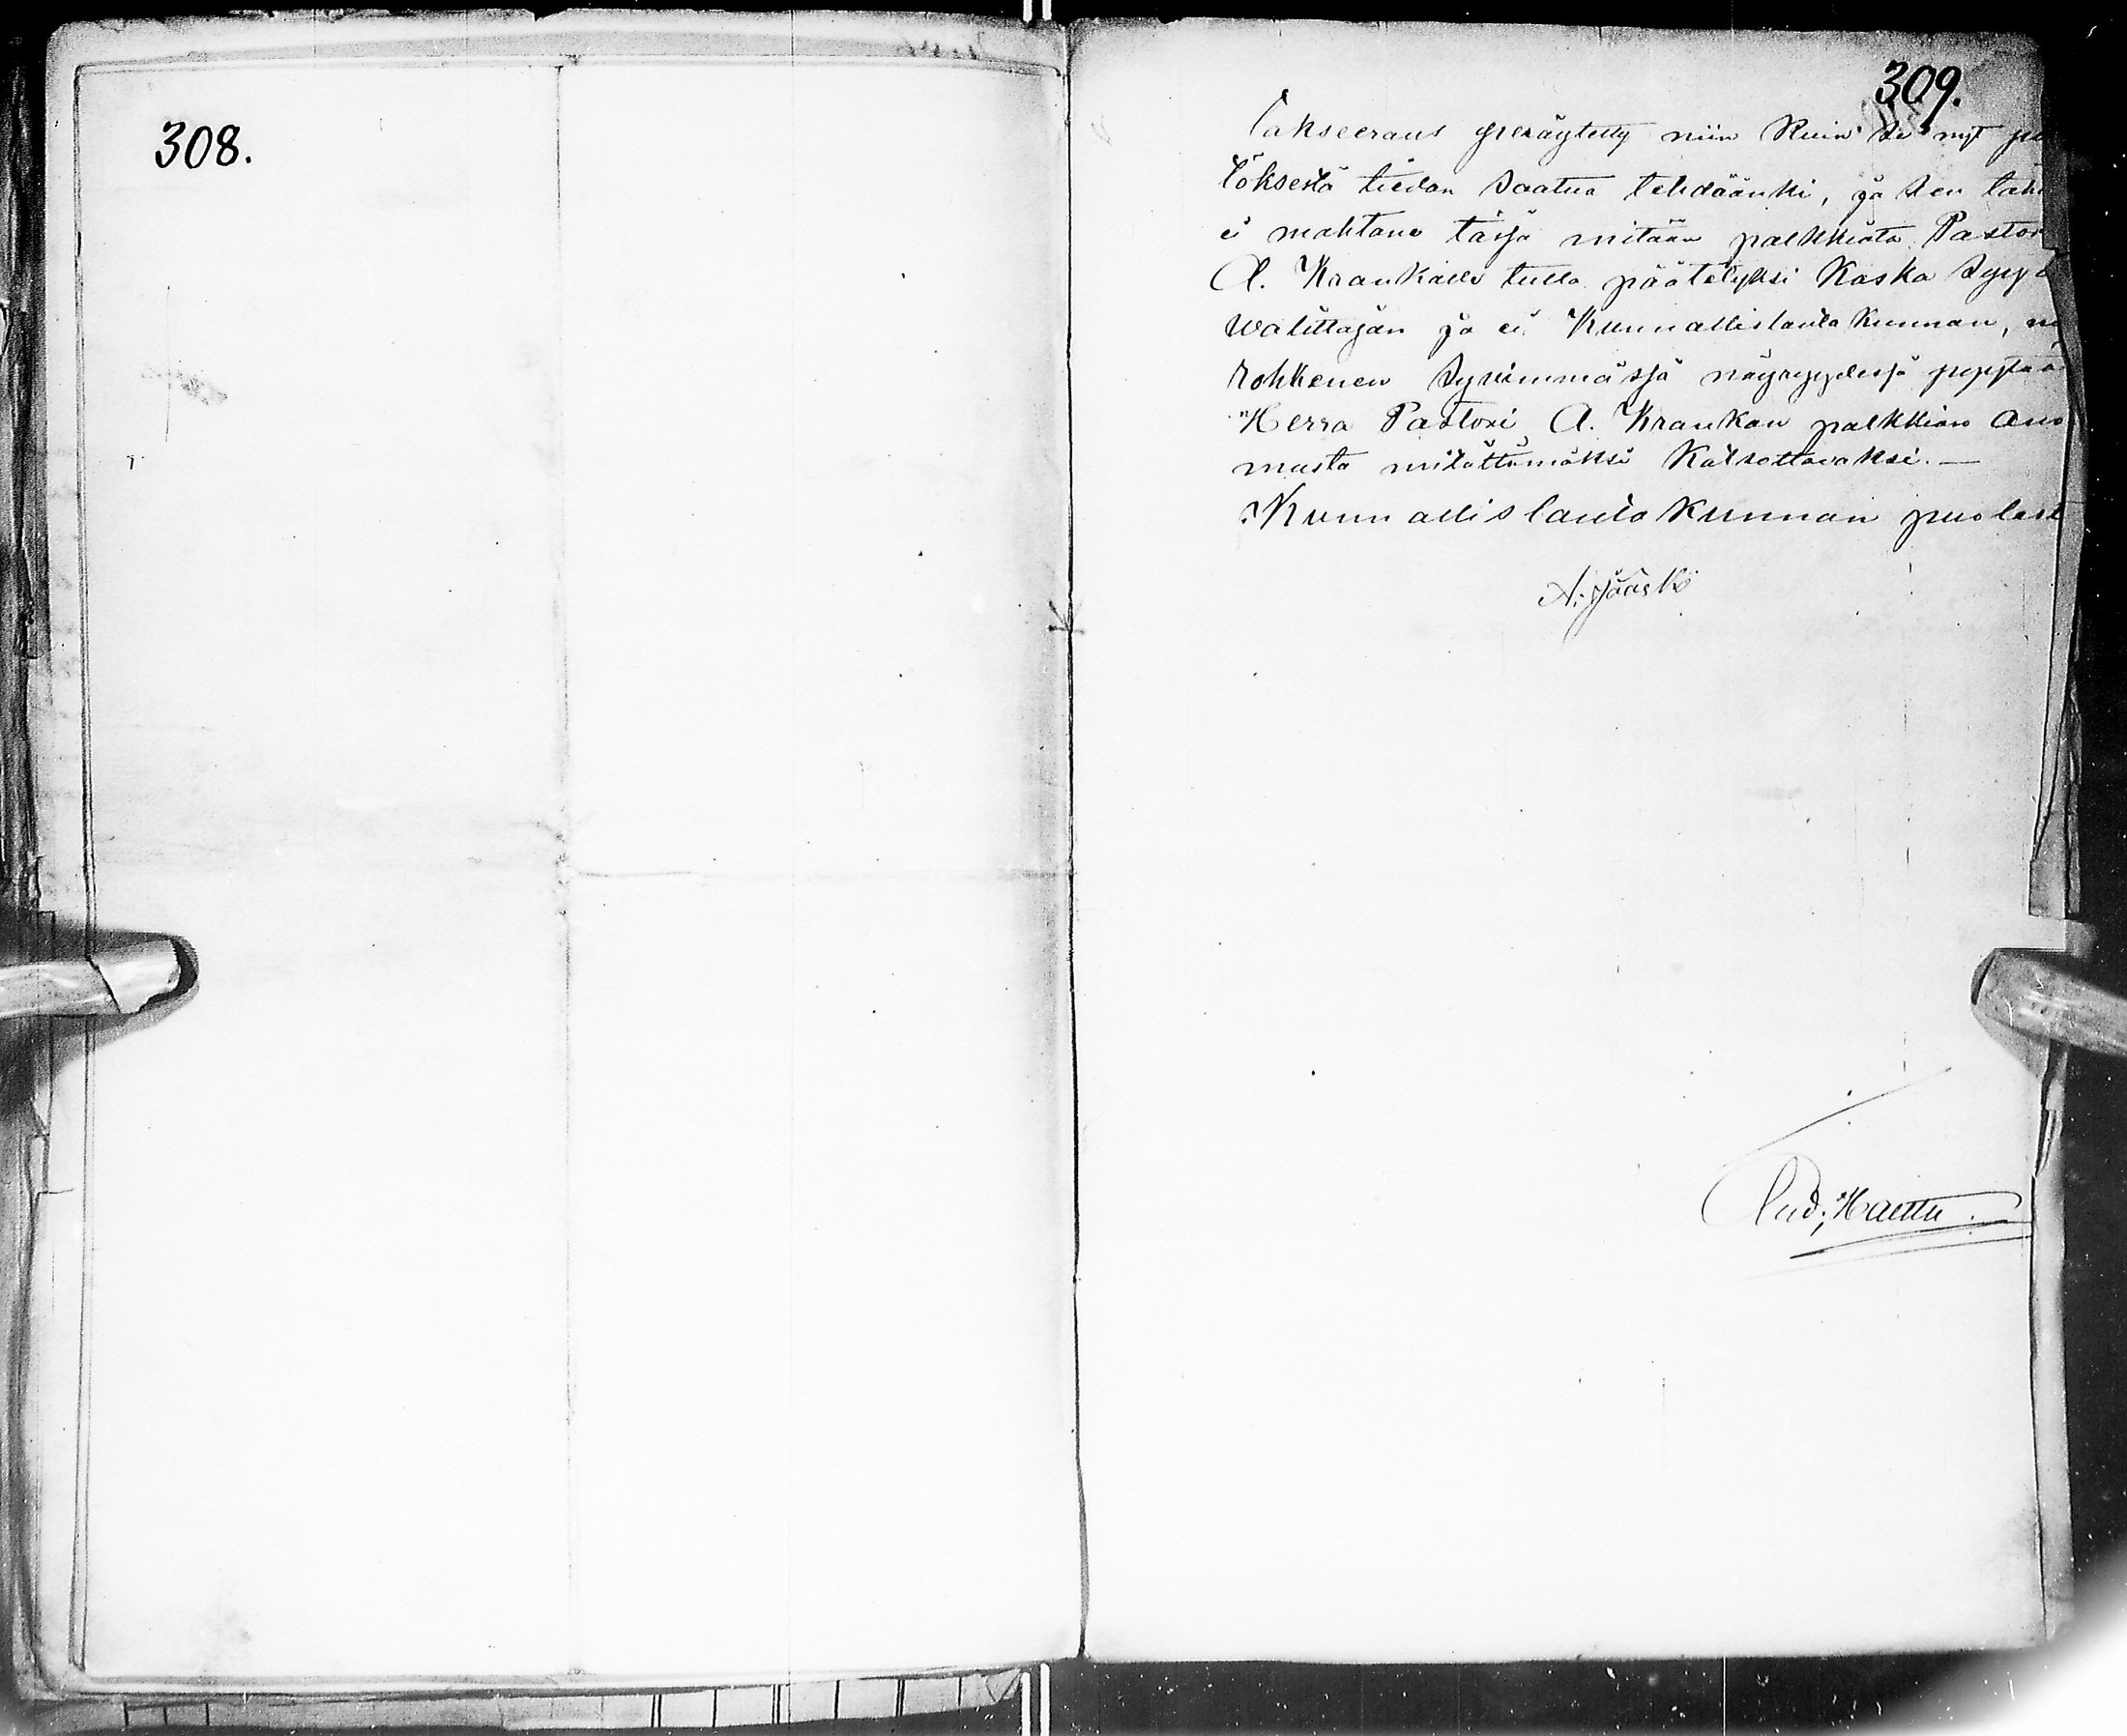 308.
309.
Takseeraus peräytetty niin Kuin se nyt
töksestä tiedon saatua tehdäänki, ja sen
ei mahtane tässä mitään palkkiota Pastor
A. Krankalle tulla päätetyksi koska syy
walittajan ja ei Kunnallislautakunnan,
rohkenen syvimmässä nöyryydessä pyytää
Herra Pastori A. Krankan palkkion ano
musta mitättömäksi Katsottavaksi. —
Kunnallislautakunnan puolest
A. Jääskö